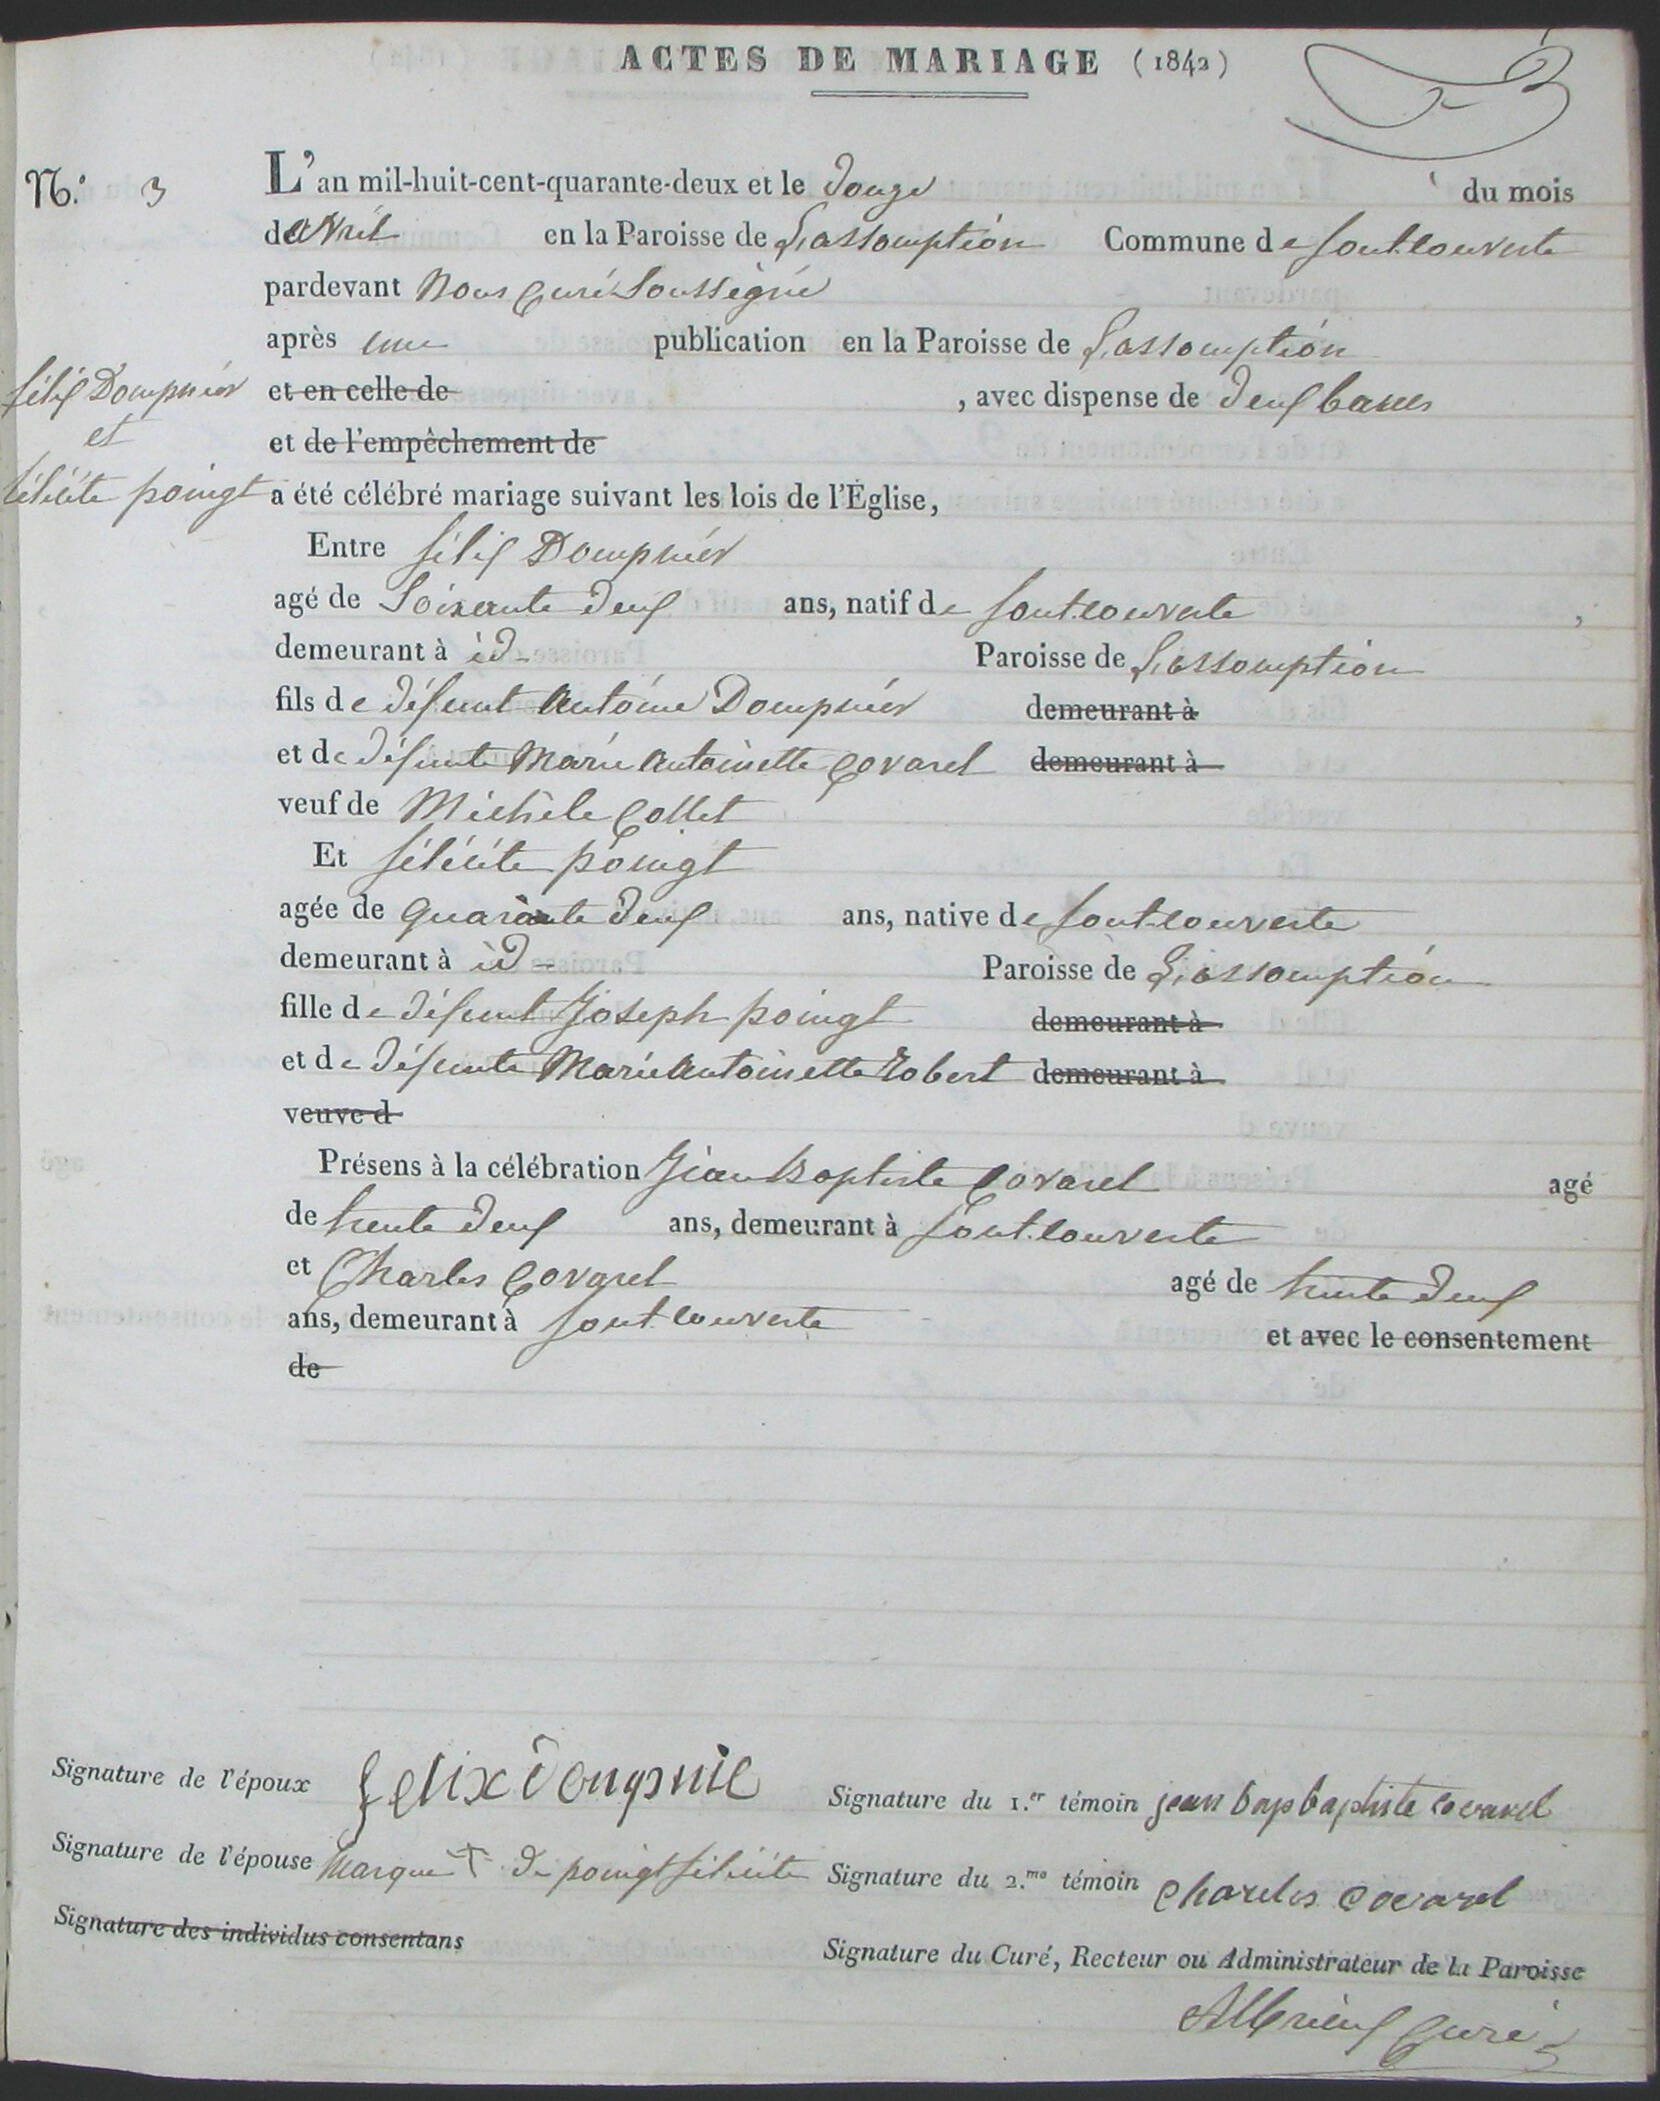 ACTES DE MARIAGE (1842)
N.° 3
L'an mil-huit-cent-quarante-deux et le douze du mois
de avril en la Paroisse de L'assomption Commune de sont-couverte
pardevant nous curé soussigné
après une publication en la Paroisse de L'assomption
félix Dompnier
et
félicite poingt
et en celle de , avec dispense de deux bancs
et de l'empêchement de
a été célébré mariage suivant les lois de l'Église,
Entre félix Dompnier
agé de soixante deux ans, natif de sont-couverte ,
demeurant à id- Paroisse de L'assomption
fils de défunt antoine Dompnier demeurant à
et de défunte marie antoinette Covarel demeurant à
veuf de Michèle Collet
Et félicite poingt
agée de quarante deux ans, native de sont-couverte
demeurant à id- Paroisse de L'assomption
fille de défunt joseph poingt demeurant à
et de défunte marie antoinette Robert demeurant à
veuve d
Présens à la célébration jean Baptiste Covarel agé
de trente deux ans, demeurant à sont-couverte
et Charles Covarel agé de trente deux
ans, demeurant à sont couverte et avec le consentement
de
Signature de l'époux felix dompnie
Signature du 1.er témoin jean bap baptiste covarel
Signature de l'épouse marque † de poingt félicite
Signature du 2.me témoin charles covarel
Signature des individus consentans
Signature du Curé, Recteur ou Administrateur de la Paroisse
Albrieux Curé